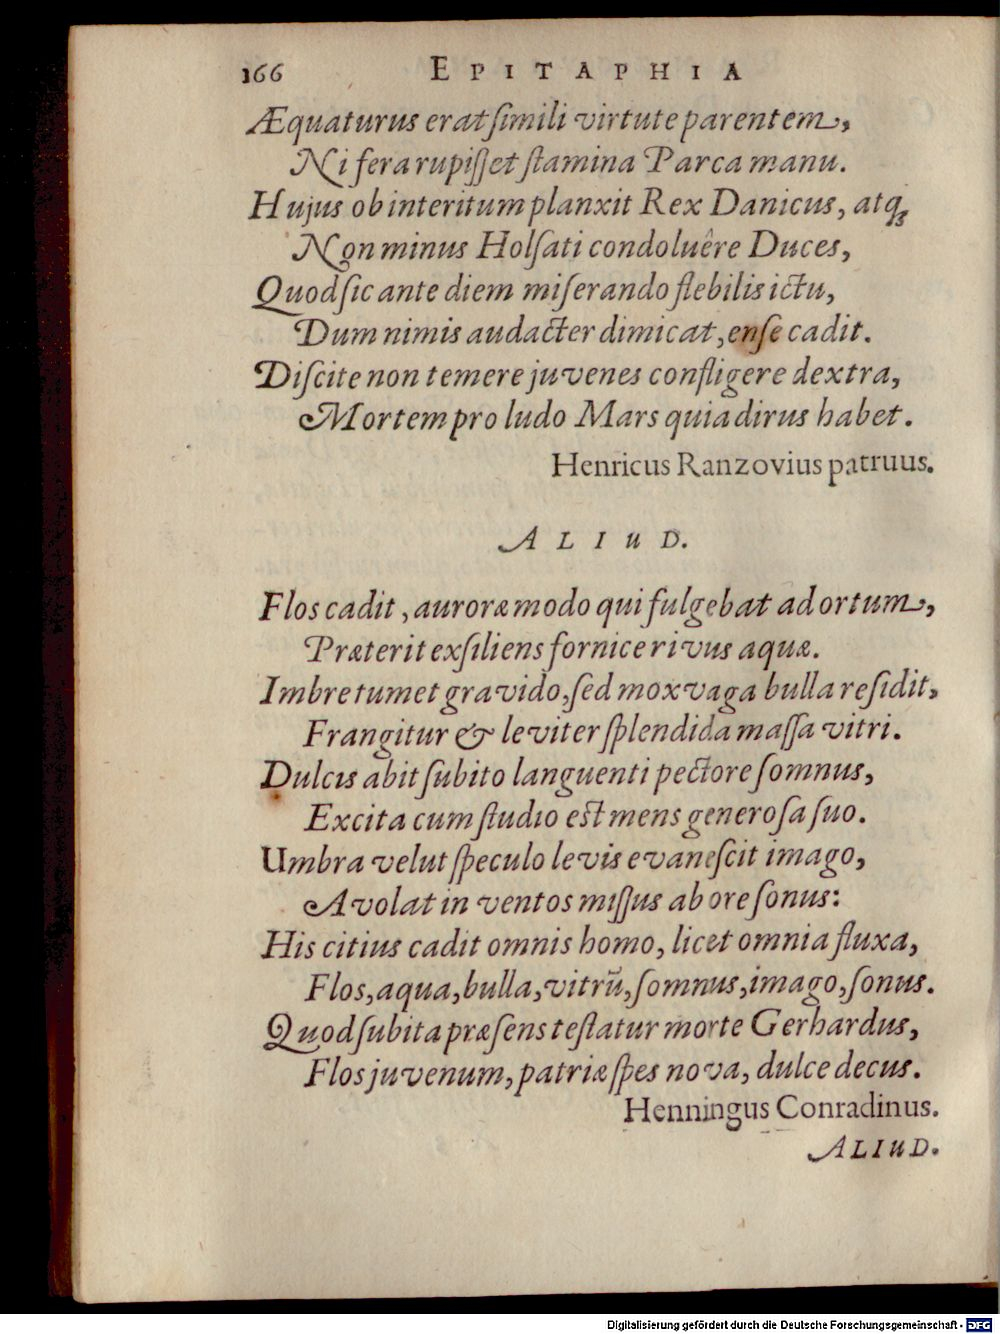 166 EPITAPHIA
Æquaturus erat ſimili virtute parentem,
Ni fera rupiſſet ſtamina Parca manu.
Hujus ob interitum planxit Rex Danicus, atqꝫ
Non minus Holſati condoluêre Duces,
Quod ſic ante diem miſerando flebilis ictu,
Dum nimis audacter dimicat, enſe cadit.
Diſcite non temere juvenes confligere dextra,
Mortem pro ludo Mars quia dirus habet.
Henricus Ranzovius patruus.
ALIuD.
Flos cadit, auroræ modo qui fulgebat ad ortum,
Præterit exſiliens fornice rivus aquæ.
Imbre tumet gravido, ſed mox vaga bulla reſidit,
Frangitur & leviter ſplendida maſſa vitri.
Dulcis abit ſubito languenti pectore ſomnus,
Excita cum ſtudio eſt mens generoſa ſuo.
Umbra velut ſpeculo levis evaneſcit imago,
Avolat in ventos miſſus ab ore ſonus:
His citius cadit omnis homo, licet omnia fluxa,
Flos, aqua, bulla, vitrū, ſomnus, imago, ſonus.
Quod ſubita præſens teſtatur morte Gerhardus,
Flos juvenum, patriæ ſpes nova, dulce decus.
Henningus Conradinus.
ALIuD.
Digitalisierung gefördert durch die Deutsche Forschungsgemeinschaft - DFG